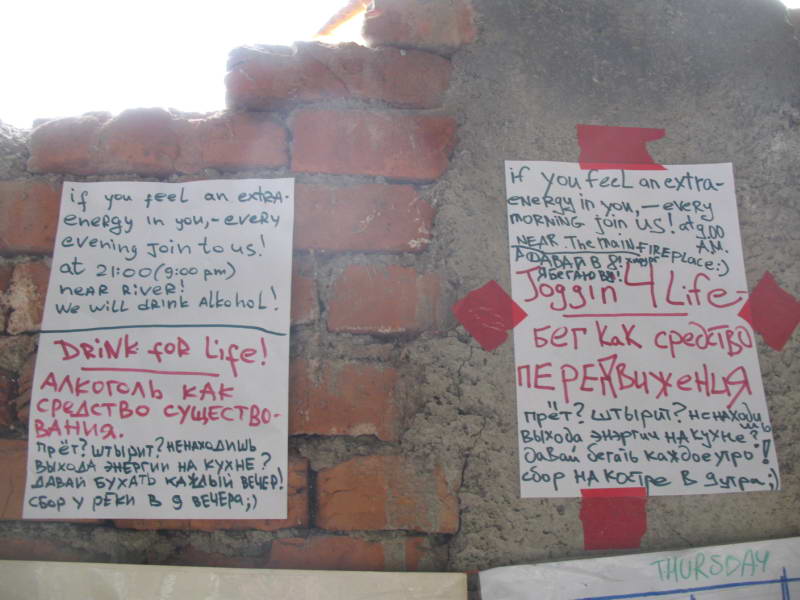 if you feel an extra-
energy in you,-every
evening join to us!
at 21:00(9:00 pm)
near River!
We will drink Alkohol!
DRiNK for Life!
АЛКОГОЛЬ КАК
СРЕДСТВО СУЩЕСТВО-
ВАНИЯ.
ПРЁТ? ШТЫРИТ? НЕНАХОДИШЬ
ВЫХОДА ЭНЕРГИИ НА КУХНЕ?
ДАВАЙ БУХАТЬ КАЖДЫЙ ВЕЧЕР!
СБОР У РЕКИ В 9 ВЕЧЕРА;)
if you feel an extra-
energy in you,-every
morning join us! at 9.00
A.M.
NEAR The main FIREplace:)
А ДАВАЙ В 8!
Я БЕГАЮ В 8!
Joggin 4 Life-
БЕГ КАК СРЕДСТВО
ПЕРЕДВИЖЕНИЯ
прёт? штырит? ненаходишь
выхода энэргии на кухне?
давай бегать каждое утро!
сбор на костре в 9 утра;)
THURSDAY